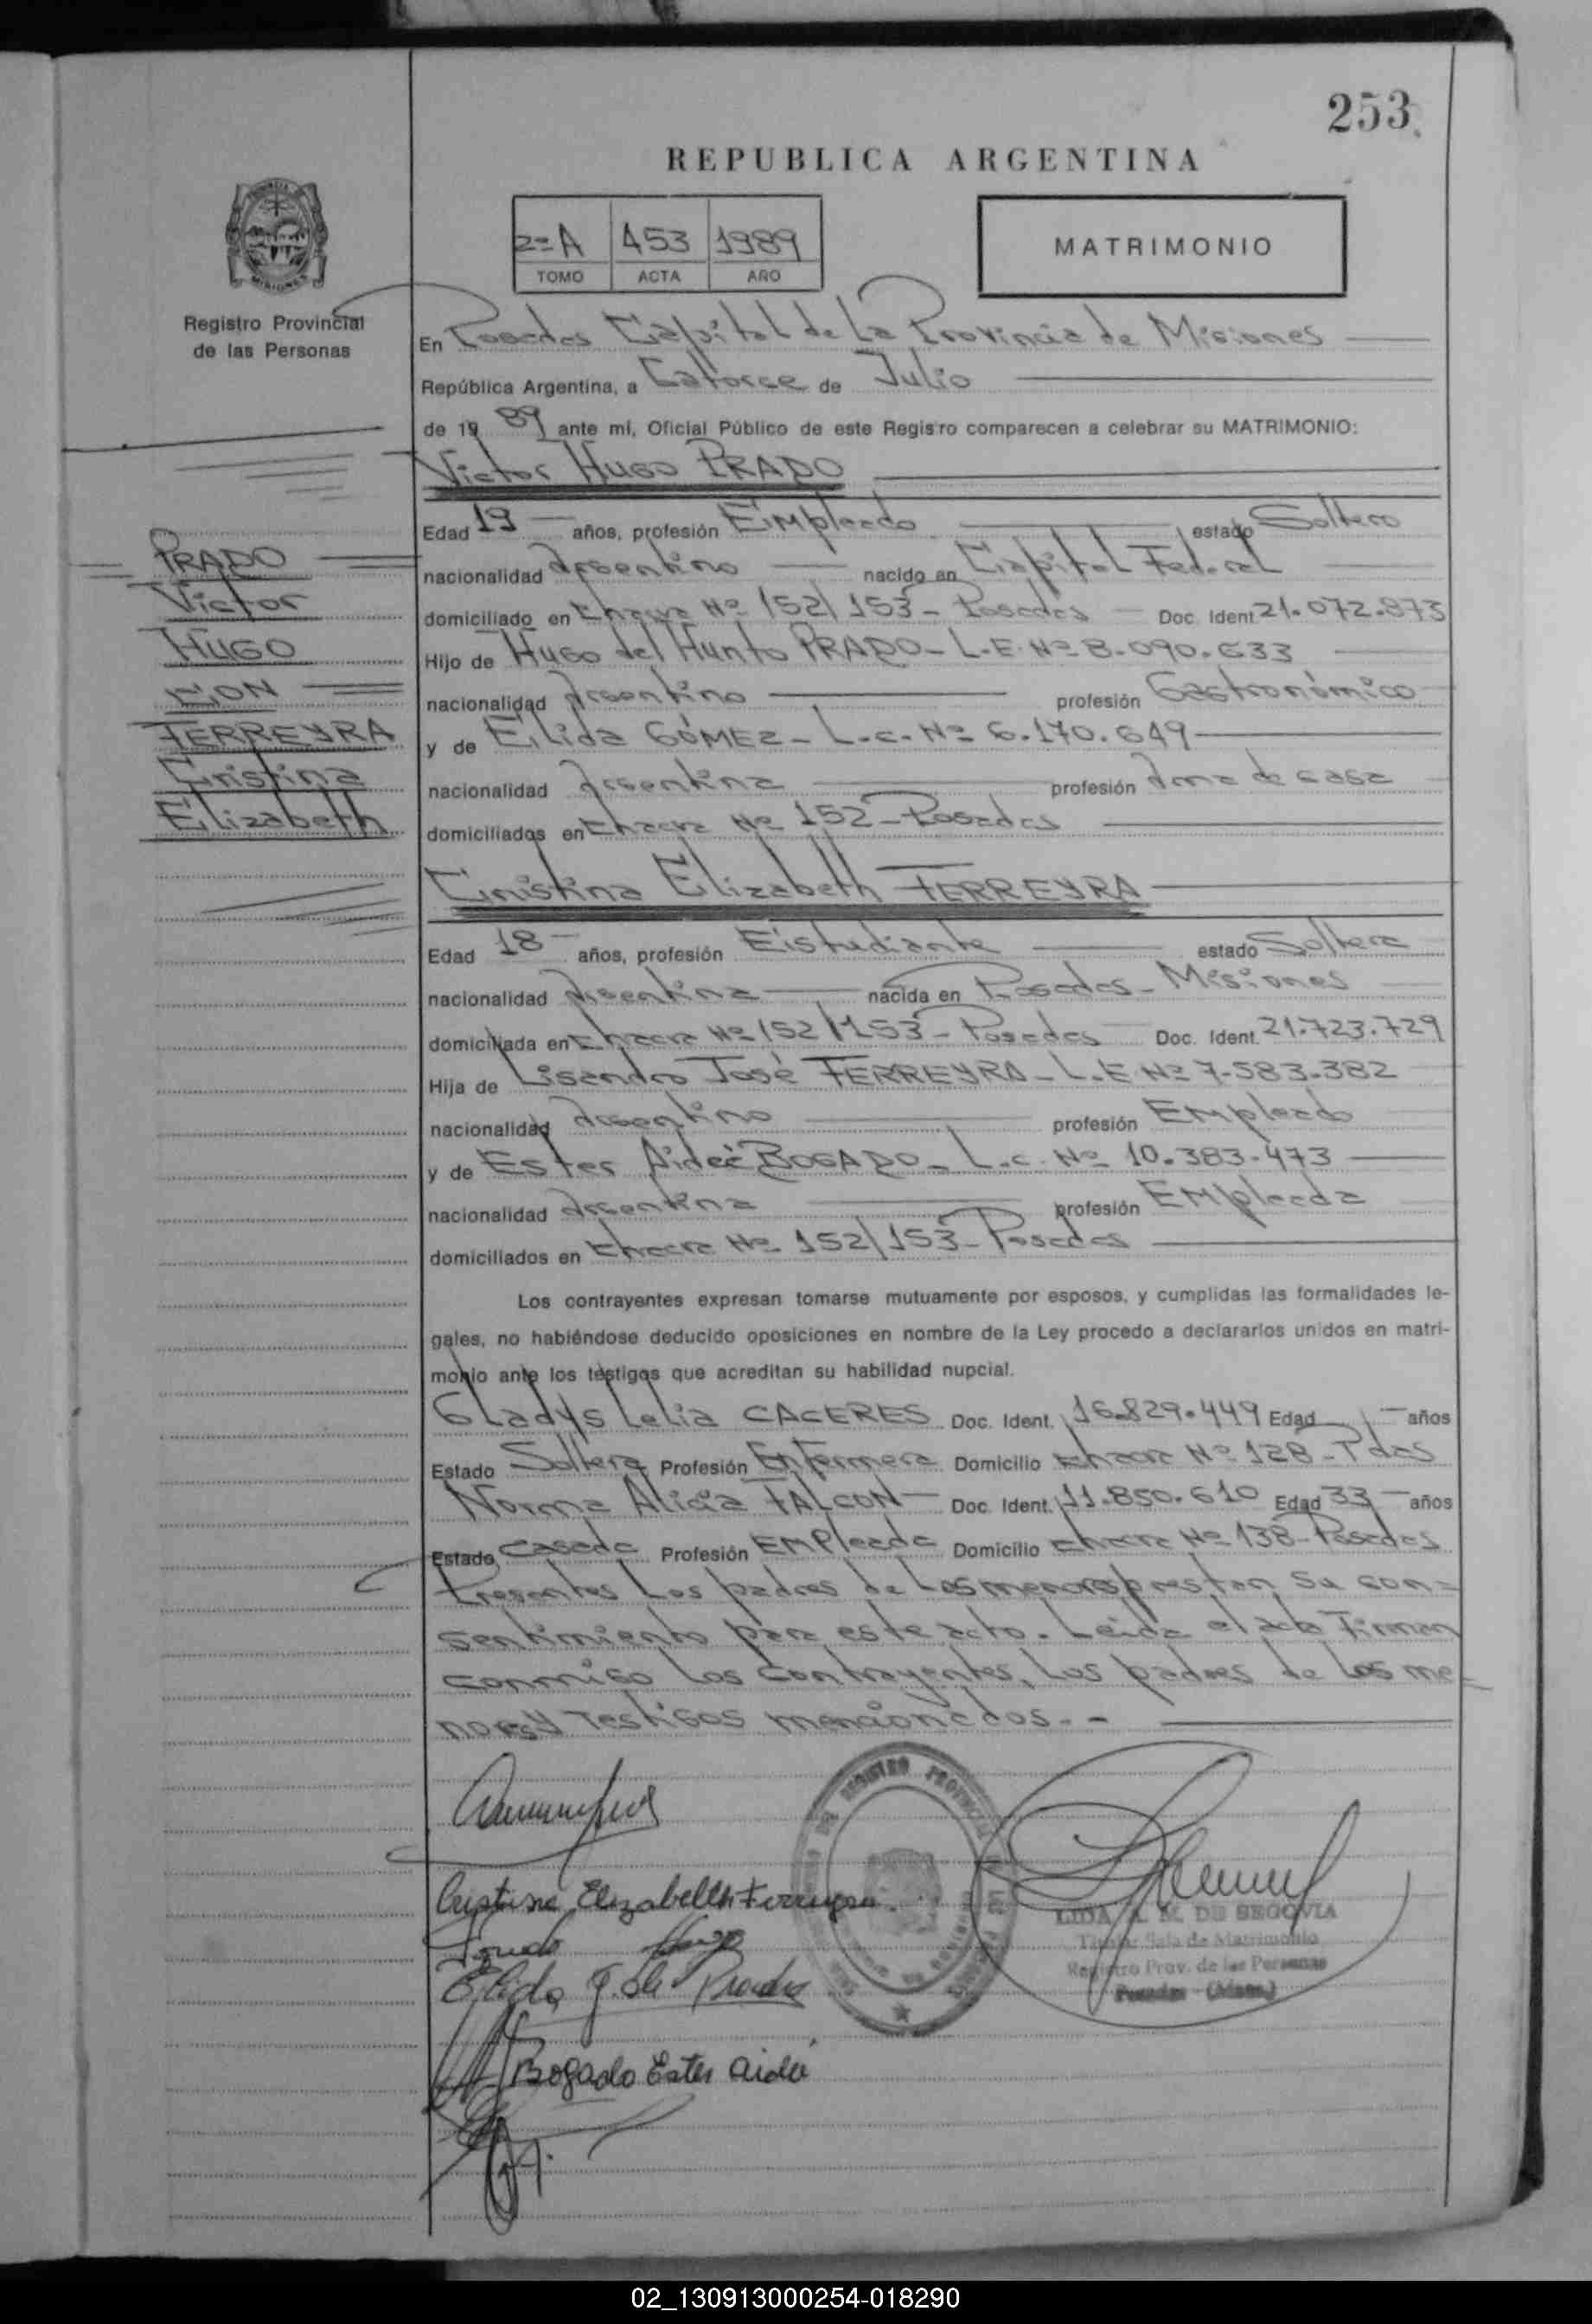 253
REPUBLICA ARGENTINA
2=A 453 1989
TOMO ACTA AÑO
MATRIMONIO
Registro Provincial
de las Personas
En Posadas Capital de La Provincia de Misiones
República Argentina, a Catorce de Julio
de 19 89 ante mí, Oficial Público de este Registro comparecen a celebrar su MATRIMONIO:
Victor Hugo PRADO
Edad 19 años, profesión Empleado estado Soltero
nacionalidad Argentino nacido en Capital Federal
domiciliado en Chacra Nº 152/153 - Posadas Doc. Ident. 21.072.873
Hijo de Hugo del PRADO - L.E. Nº 8.090.633
nacionalidad Argentino profesión Gastronómico
y de Elida GÓMEZ - L.C. Nº 6.170.649
nacionalidad Argentina profesión Ama de casa
domiciliados en Chacra Nº 152 - Posadas
PRADO
Victor
HUGO
CON
FERREYRA
Cristina
Elizabeth
Cristina Elizabeth FERREYRA
Edad 18 años, profesión Estudiante estado Soltera
nacionalidad Argentina nacida en Posadas - Misiones
domiciliada en Chacra Nº 152/153 - Posadas Doc. Ident. 21.723.729
Hija de Lisandro José FERREYRA - L.E. Nº 7.583.382
nacionalidad Argentino profesión Empleado
y de Ester Aideé BOGADO - L.C. Nº 10.383.473
nacionalidad Argentina profesión Empleada
domiciliados en Chacra Nº 152/153 - Posadas
Los contrayentes expresan tomarse mutuamente por esposos, y cumplidas las formalidades le-
gales, no habiéndose deducido oposiciones en nombre de la Ley procedo a declararlos unidos en matri-
monio ante los testigos que acreditan su habilidad nupcial.
Gladys Lelia CACERES Doc. Ident. 16.829.449 Edad años
Estado Soltera Profesión Enfermera Domicilio Chacra Nº 128 - Pdas
Norma Alicia FALCON Doc. Ident. 11.850.610 Edad 33 años
Estado Casada Profesión Empleada Domicilio Chacra Nº 138 - Posadas
Presentes Los padres de Los menores prestan su con=
sentimiento para este acto. Leída el acta Firman
conmigo los contrayentes, Los padres de los me=
nores y Testigos mencionados.-
Cristina Elizabeth Ferreyra
Elida G. de Prado
Bogado Ester Aideé
LIDA A. M. DE SEGOVIA
Titular Sala de Matrimonio
Registro Prov. de las Personas
Posadas (Mnes.)
02_130913000254-018290